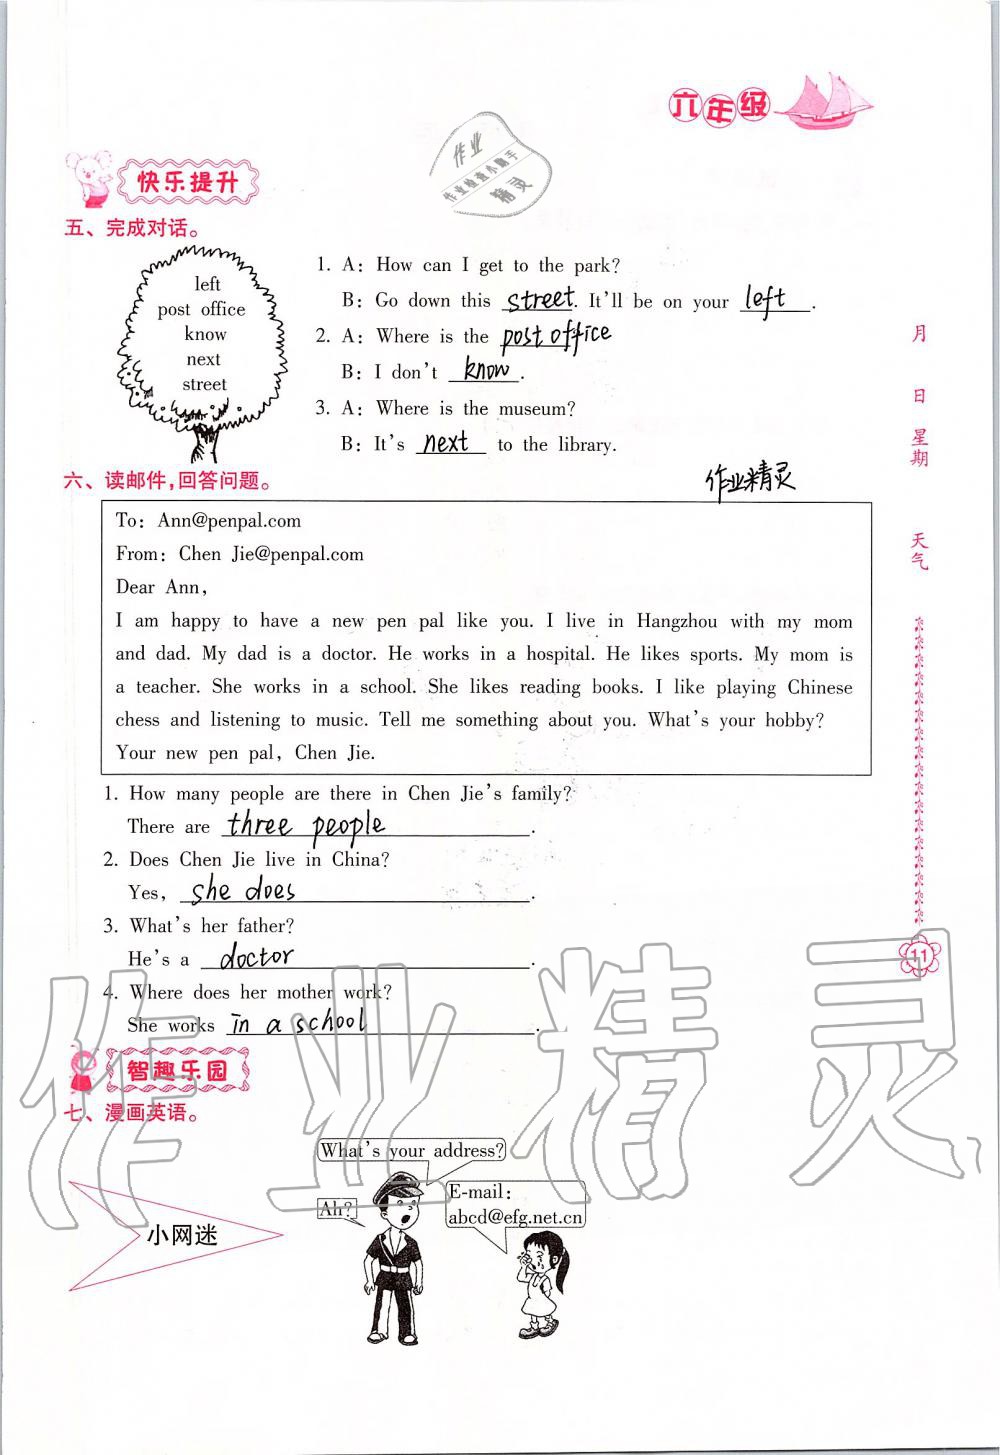 六年级
作业
作业检查小助手
精灵
快乐提升
五、完成对话。
left
post office
know
next
street
1. A: How can I get to the park?
B: Go down this street. It'll be on your left.
2. A: Where is the post office
B: I don't know.
3. A: Where is the museum?
B: It's next to the library.
月
日
星期
天气
六、读邮件,回答问题。
作业精灵
To: Ann@penpal.com
From: Chen Jie@penpal.com
Dear Ann,
I am happy to have a new pen pal like you. I live in Hangzhou with my mom
and dad. My dad is a doctor. He works in a hospital. He likes sports. My mom is
a teacher. She works in a school. She likes reading books. I like playing Chinese
chess and listening to music. Tell me something about you. What's your hobby?
Your new pen pal, Chen Jie.
1. How many people are there in Chen Jie's family?
There are three people.
2. Does Chen Jie live in China?
Yes, she does.
3. What's her father?
He's a doctor.
4. Where does her mother work?
She works in a school.
11
作业精灵
智趣乐园
七、漫画英语。
What's your address?
Ah?
E-mail:
abcd@efg.net.cn
小网迷